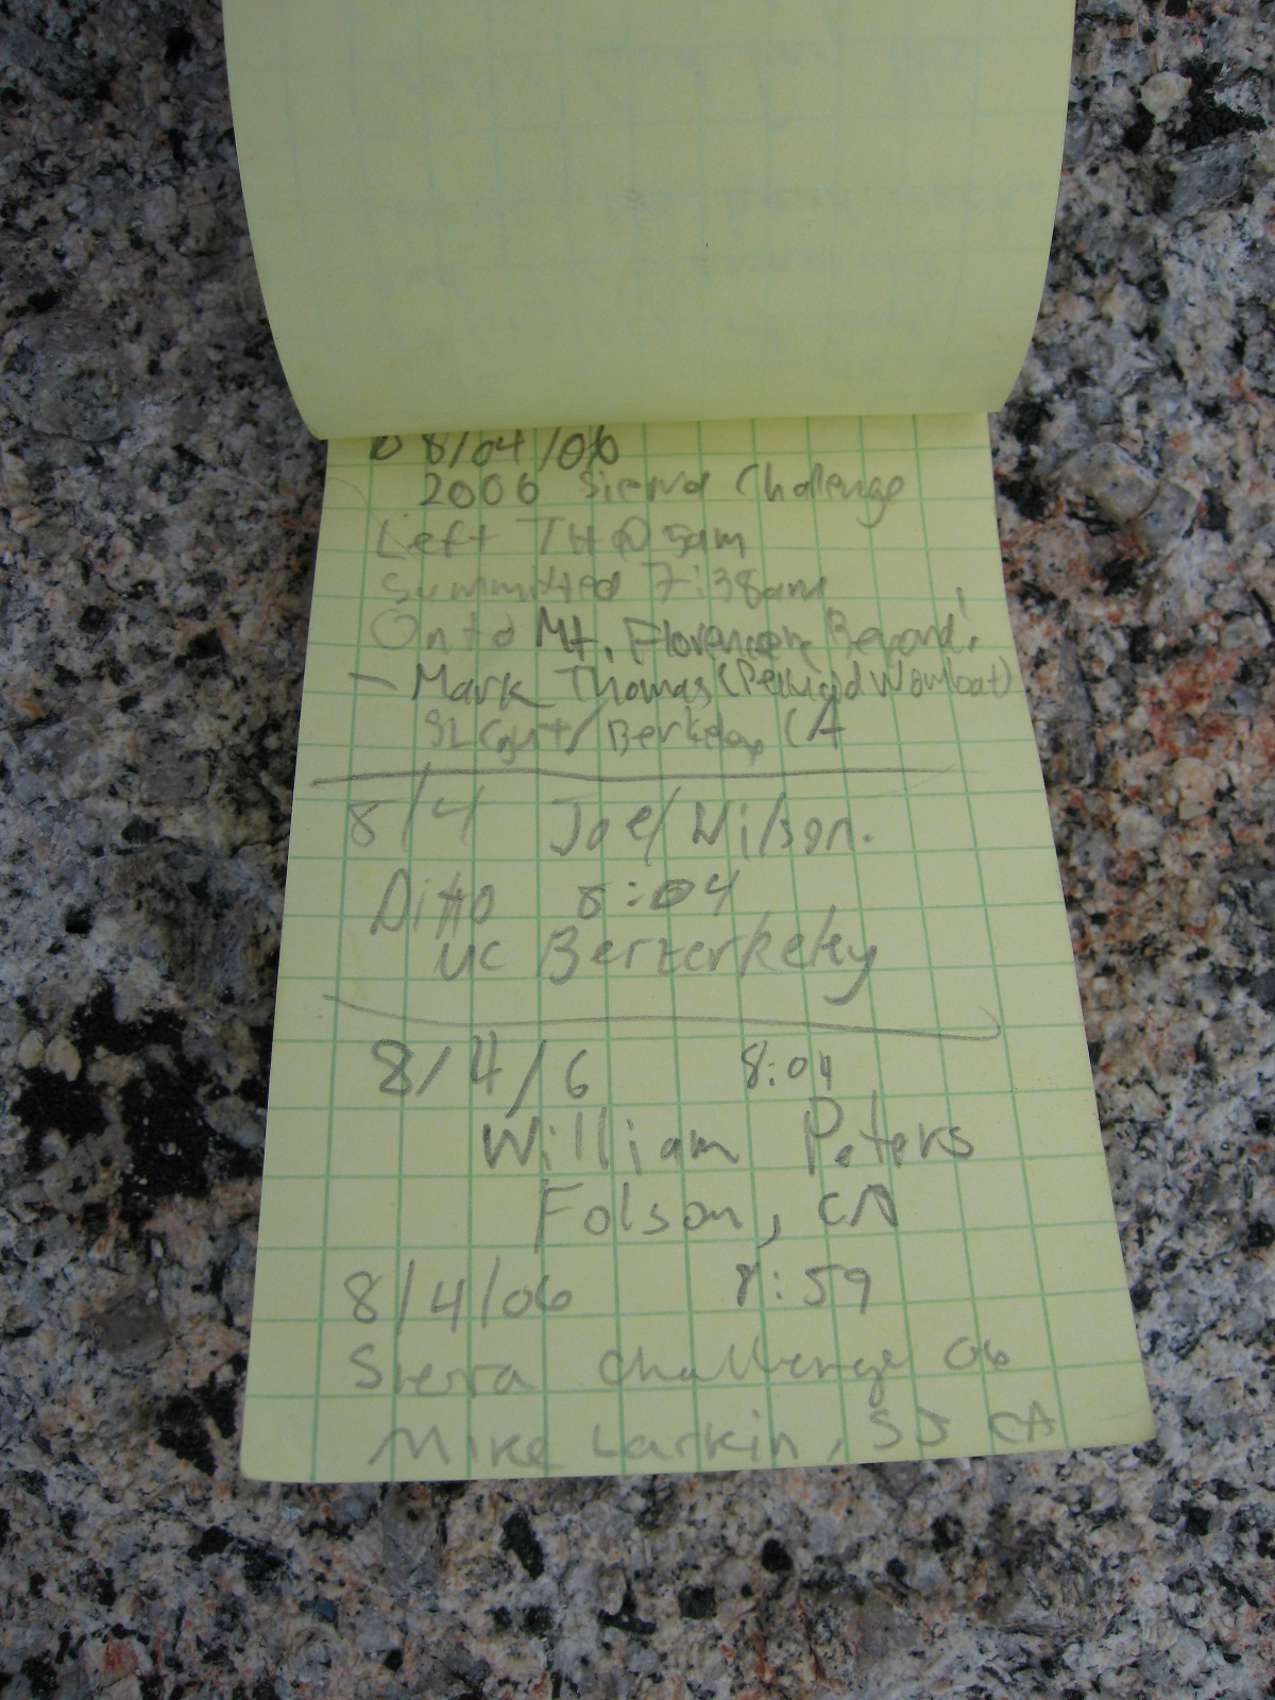 8/04/06
2006 Sierra Challenge
Left TH @ 5am
Summitted 7:38am
Onto Mt. Florence & Beyond!
- Mark Thomas (Pellucid Wombat)
/ Berkeley, CA
8/4 Joel Wilson.
Ditto 8:04
UC Berzerkeley
8/4/6 8:04
William Peters
Folsom, CA
8/4/06 8:59
Sierra Challenge 06
Mike Larkin, SJ CA